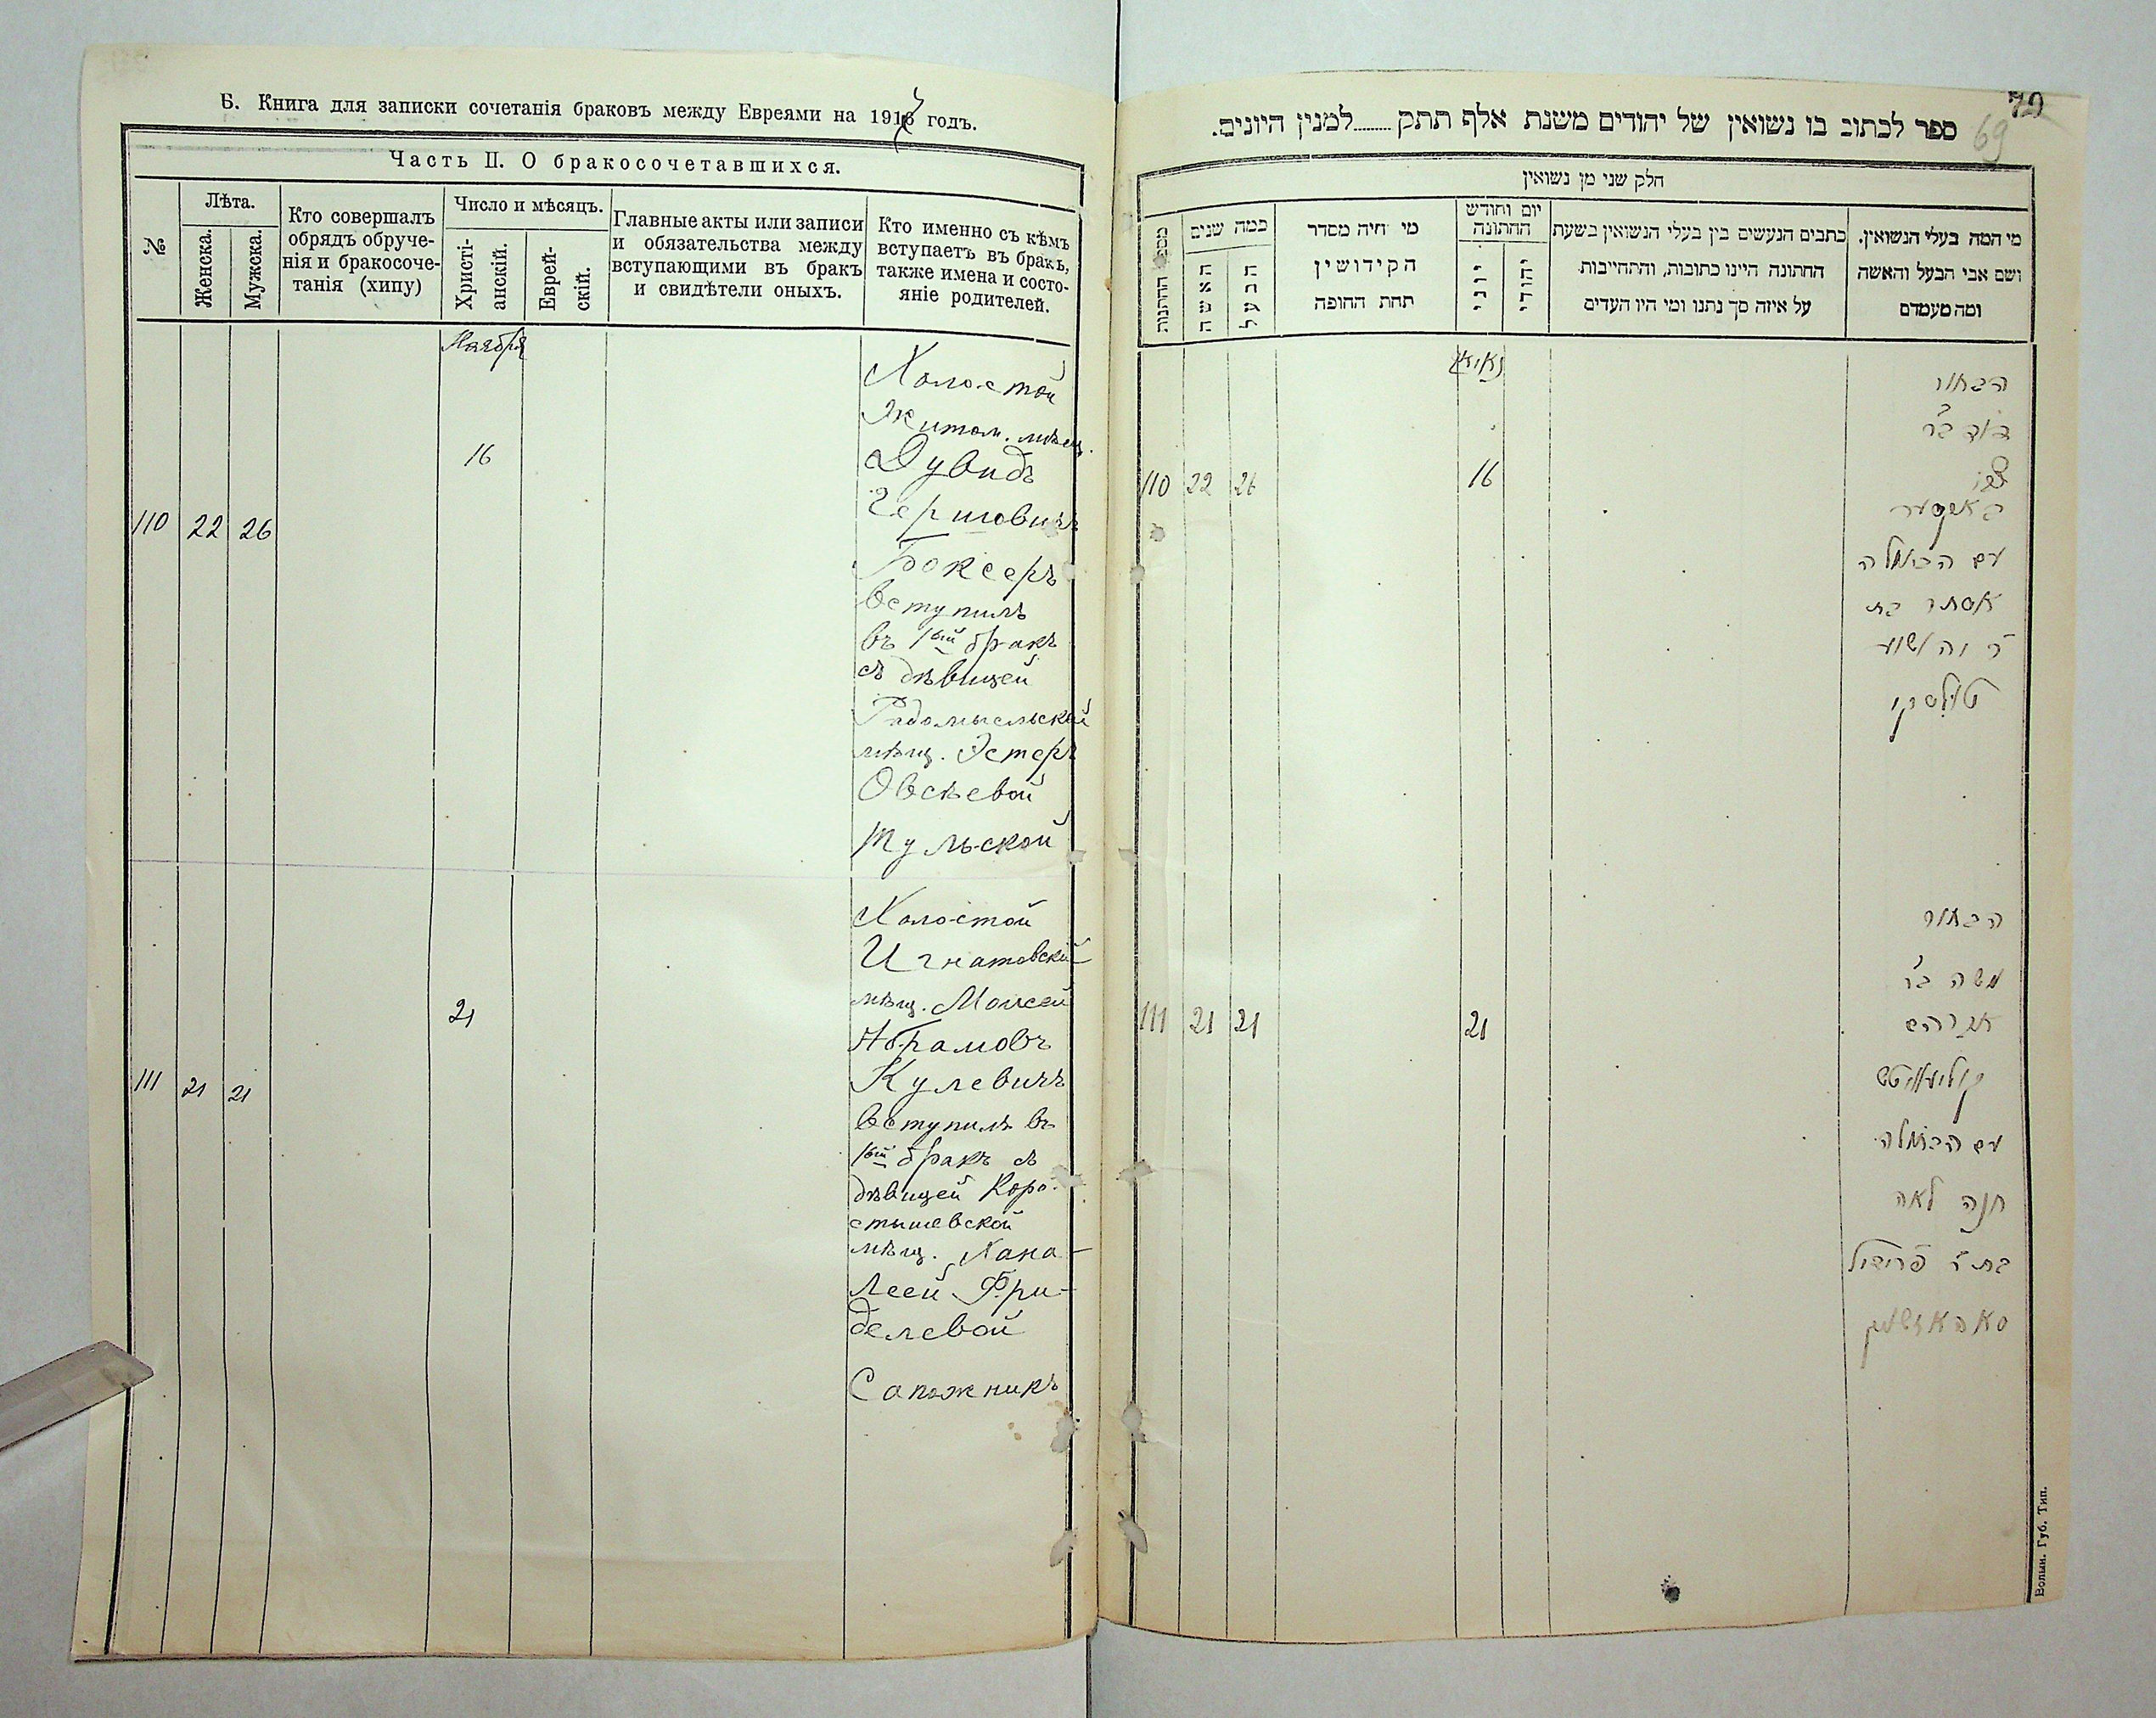 Б. Книга для записки сочетанія браковъ между Евреями на 1917 годъ.
Часть II. О бракосочетавшихся.
№
Лѣта.
Женска.
Мужска.
Кто совершалъ
обрядъ обруче-
нія и бракосоче-
танія (хипу)
Число и мѣсяцъ.
Христі-
анскій.
Еврей-
скій.
Главные акты или записи
и обязательства между
вступающими въ бракъ
и свидѣтели оныхъ.
Кто именно съ кѣмъ
вступаетъ въ бракъ,
также имена и состо-
яніе родителей.
Ноября
110 22 26
16
Холостой
Житом. мѣщ.
Дувидъ
Гершовичъ
Боксеръ
вступилъ
въ 1ый бракъ
съ дѣвицей
Радомысльской
мѣщ. Эстеръ
Овсѣевой
Тульской
111 21 21
21
Холостой
Игнатовскій
мѣщ. Моисей
Абрамовъ
Кулевичъ
вступилъ въ
1ый бракъ съ
дѣвицей Коро-
стышевской
мѣщ. Хана-
Леей Фри-
делевой
Сапожникъ
70
69
ספר לכתוב בו נשואין של יהודים משנת אלף תתק........למנין היונים.
חלק שני מן נשואין
מספר החתנות
כמה שנים
האשה
הבעל
מי היה מסדר
הקידושין
תחת החופה
יום וחודש
החתונה
יוני
יהודי
כתבים הנעשים בין בעלי הנשואין בשעת
החתונה היינו כתובות, והתחייבות
על איזה סך נתנו ומי היו העדים
מי המה בעלי הנשואין.
ושם אבי הבעל והאשה
ומה מעמדם
110 22 26
16
הבחור
דוד ב״ר
צבי
באקסער
עם הבתולה
אסתר בת
ר׳ יהושע
טולסקי
111 21 21
21
הבחור
משה ב״ר
אברהם
קוליעוויטש
עם הבתולה
חנה לאה
בת ר׳ פרידיל
Волын. Губ. Тип.